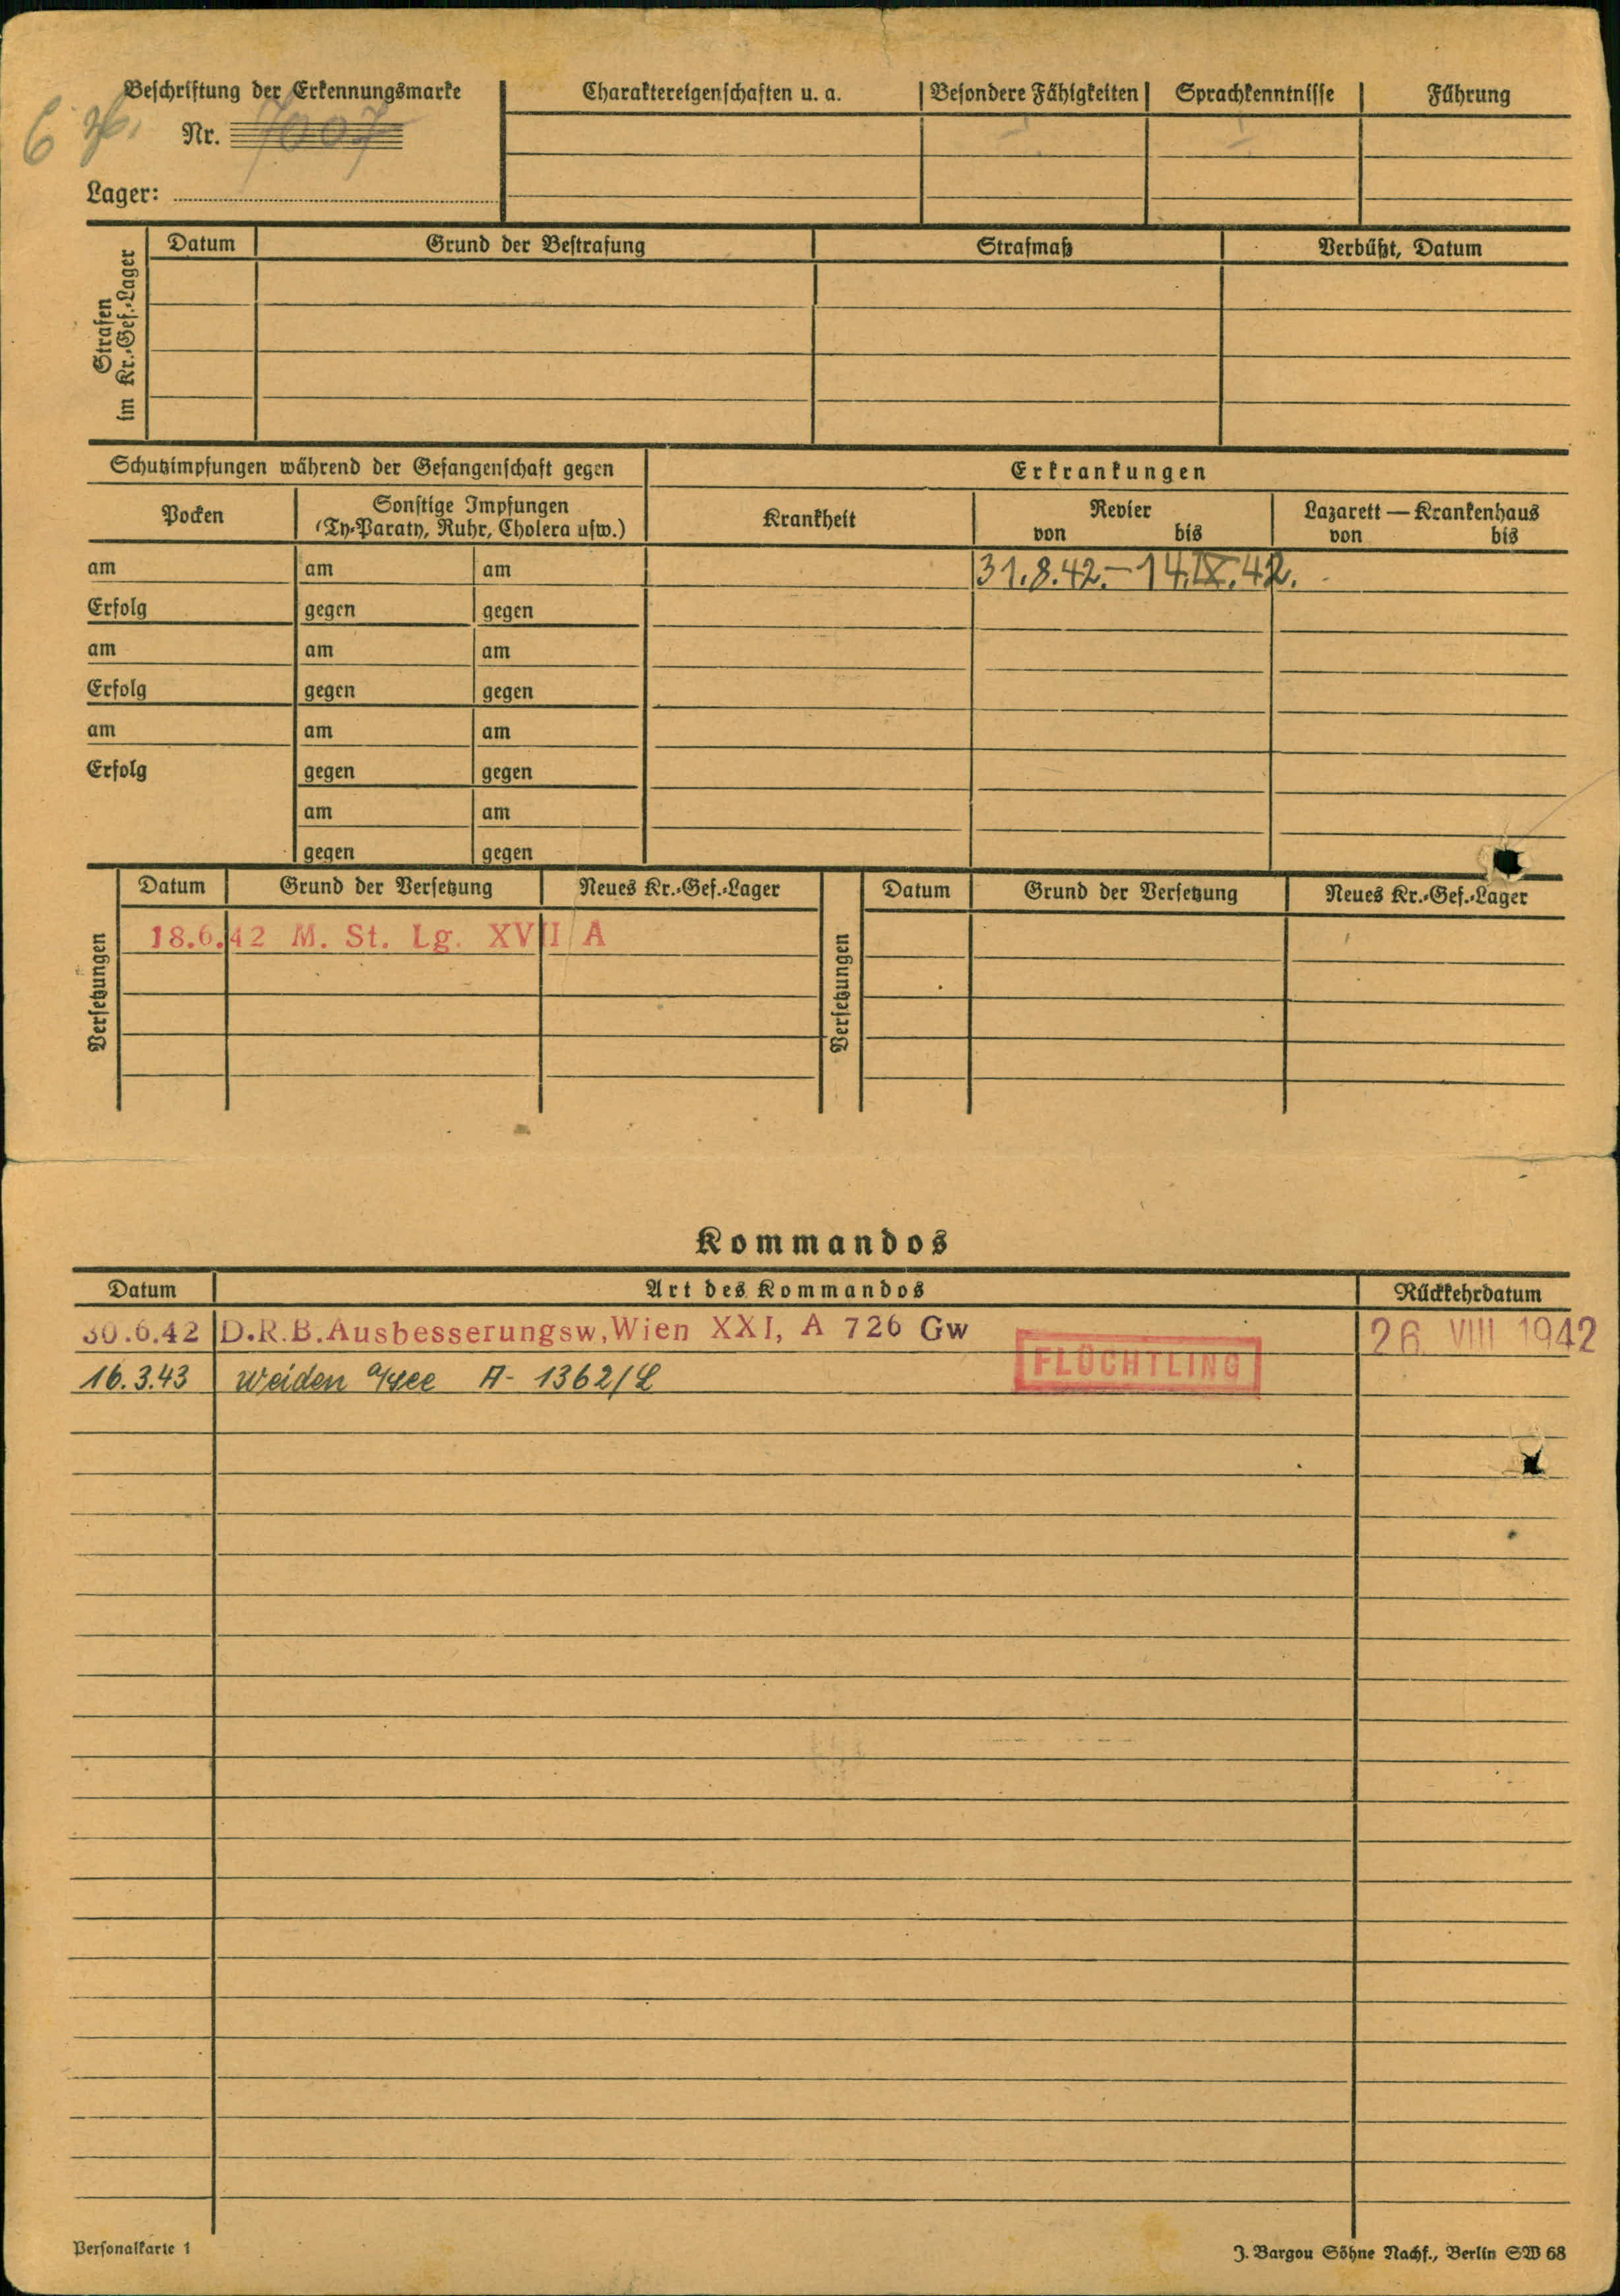 Beschriftung der Erkennungsmarke
Nr. 7007
Lager:
Charaktereigenschaften u. a. Besondere Fähigkeiten Sprachkenntnisse Führung
Strafen
im Kr.-Gef.-Lager
Datum Grund der Bestrafung Strafmaß Verbüßt, Datum
Schutzimpfungen während der Gefangenschaft gegen
Pocken
Sonstige Impfungen
(Ty-Paraty, Ruhr, Cholera usw.)
am am am
Erfolg gegen gegen
am am am
Erfolg gegen gegen
am am am
Erfolg gegen gegen
am am
gegen gegen
Erkrankungen
Krankheit Revier Lazarett — Krankenhaus
von bis von bis
31.8.42.–14.IX.42.
Versetzungen
Datum Grund der Versetzung Neues Kr.-Gef.-Lager
18.6.42 M. St. Lg. XVII A
Versetzungen
Datum Grund der Versetzung Neues Kr.-Gef.-Lager
Kommandos
Datum Art des Kommandos Rückkehrdatum
30.6.42 D.R.B.Ausbesserungsw,Wien XXI, A 726 Gw 26. VIII 1942
FLÜCHTLING
16.3.43 Weiden a/See A- 1362/L
Personalkarte 1
J. Bargou Söhne Nachf., Berlin SW 68